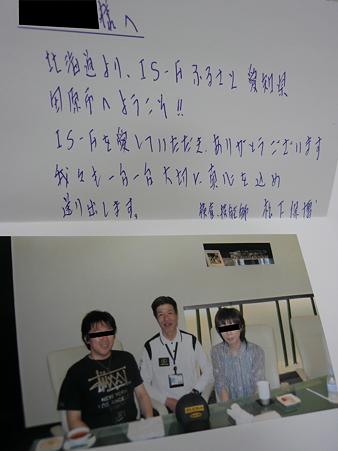 様へ
北海道より、IS-Fふるさと愛知県
田原市へようこそ!!
IS-Fを愛していただき、ありがとうございます
我々も一台一台大切に真心を込め
送り出します。
松下保博
NEW YORK
LOS